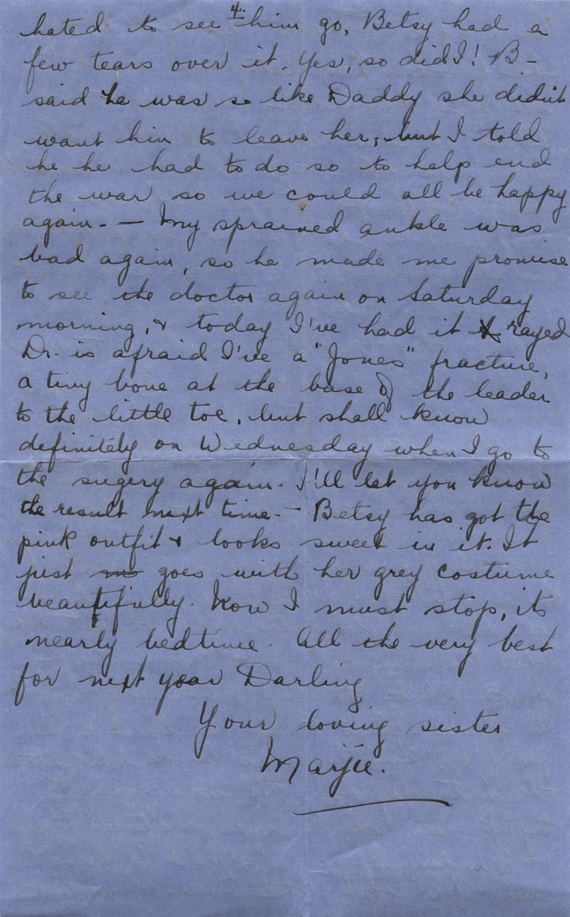 4.
hated to see him go, Betsy had a
few tears over it. Yes, so did I! B-
said he was so like Daddy she didn't
want him to leave her, but I told
he he had to do so to help end
the war so we could all be happy
again. - My sprained ankle was
bad again, so he made me promise
to see the doctor again on Saturday
morning, & today I've had it X rayed
Dr. is afraid I've a "Jones" fracture,
a tiny bone at the base of the leader
to the little toe, but shall know
definitely on Wednesday when I go to
the sugery again. I'll let you know
the result next time. - Betsy has got the
pink outfit & looks sweet in it. It
just goes with her grey costume
beautifully. Now I must stop, its
nearly bedtime. All the very best
for next year Darling
Your loving sister
Marjie.